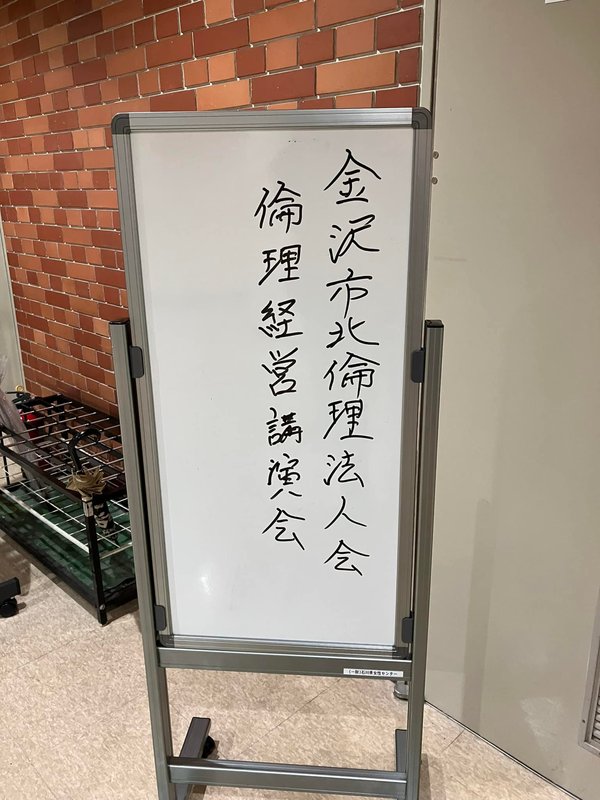 金沢市北倫理法人会
倫理経営講演会
(一財)石川県女性センター